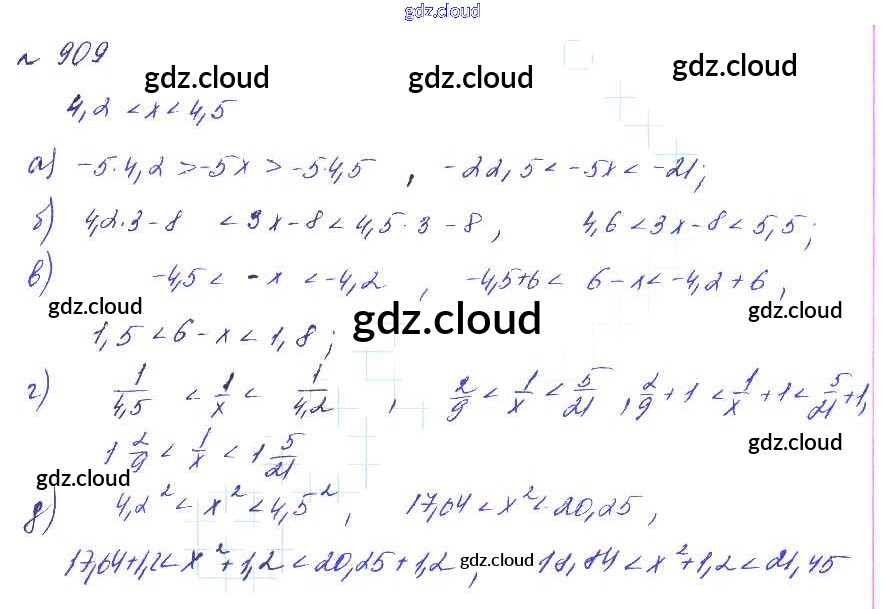 gdz.cloud
№ 909
gdz.cloud gdz.cloud gdz.cloud
4,2 < x < 4,5
а) -5·4,2 > -5x > -5·4,5 , -22,5 < -5x < -21;
б) 4,2·3-8 < 3x-8 < 4,5·3-8, 4,6 < 3x-8 < 5,5;
в) -4,5 < -x < -4,2 , -4,5+6 < 6-x < -4,2+6,
gdz.cloud gdz.cloud gdz.cloud
1,5 < 6-x < 1,8;
г) 1/4,5 < 1/x < 1/4,2 , 2/9 < 1/x < 5/21 , 2/9 + 1 < 1/x + 1 < 5/21 + 1,
gdz.cloud
1 2/9 < 1/x < 1 5/21
gdz.cloud
д) 4,2² < x² < 4,5² , 17,64 < x² < 20,25 ,
17,64+1,2 < x²+1,2 < 20,25+1,2 , gdz.cloud 18,84 < x²+1,2 < 21,45